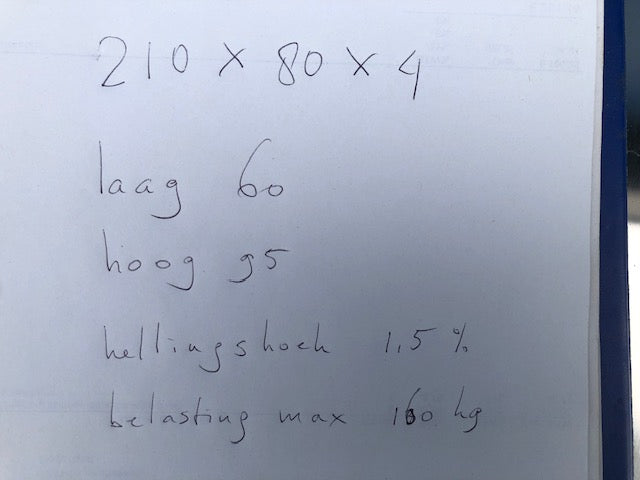 210 x 80 x 4
laag 60
hoog 95
hellingshoek 1,5 %
belasting max 160 kg